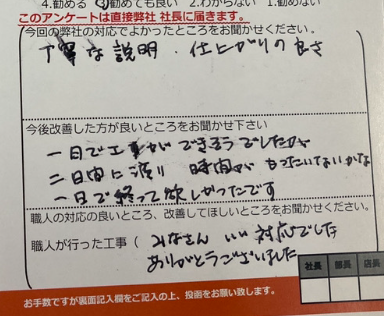 4.勧める ③勧めても良い 2.わからない 1.勧めない
このアンケートは直接弊社 社長に届きます。
今回の弊社の対応でよかったところをお聞かせください。
丁寧な説明．仕上がりの良さ
今後改善した方が良いところをお聞かせ下さい
一日で工事ができそうでしたが
二日間に渡り 時間が もったいないかな
一日で終って欲しかったです
職人の対応の良いところ、改善してほしいところをお聞かせください。
職人が行った工事（ みなさん いい 対応でした
ありがとうございました
社長 部長 店長
お手数ですが裏面記入欄をご記入の上、投函をお願い致します。